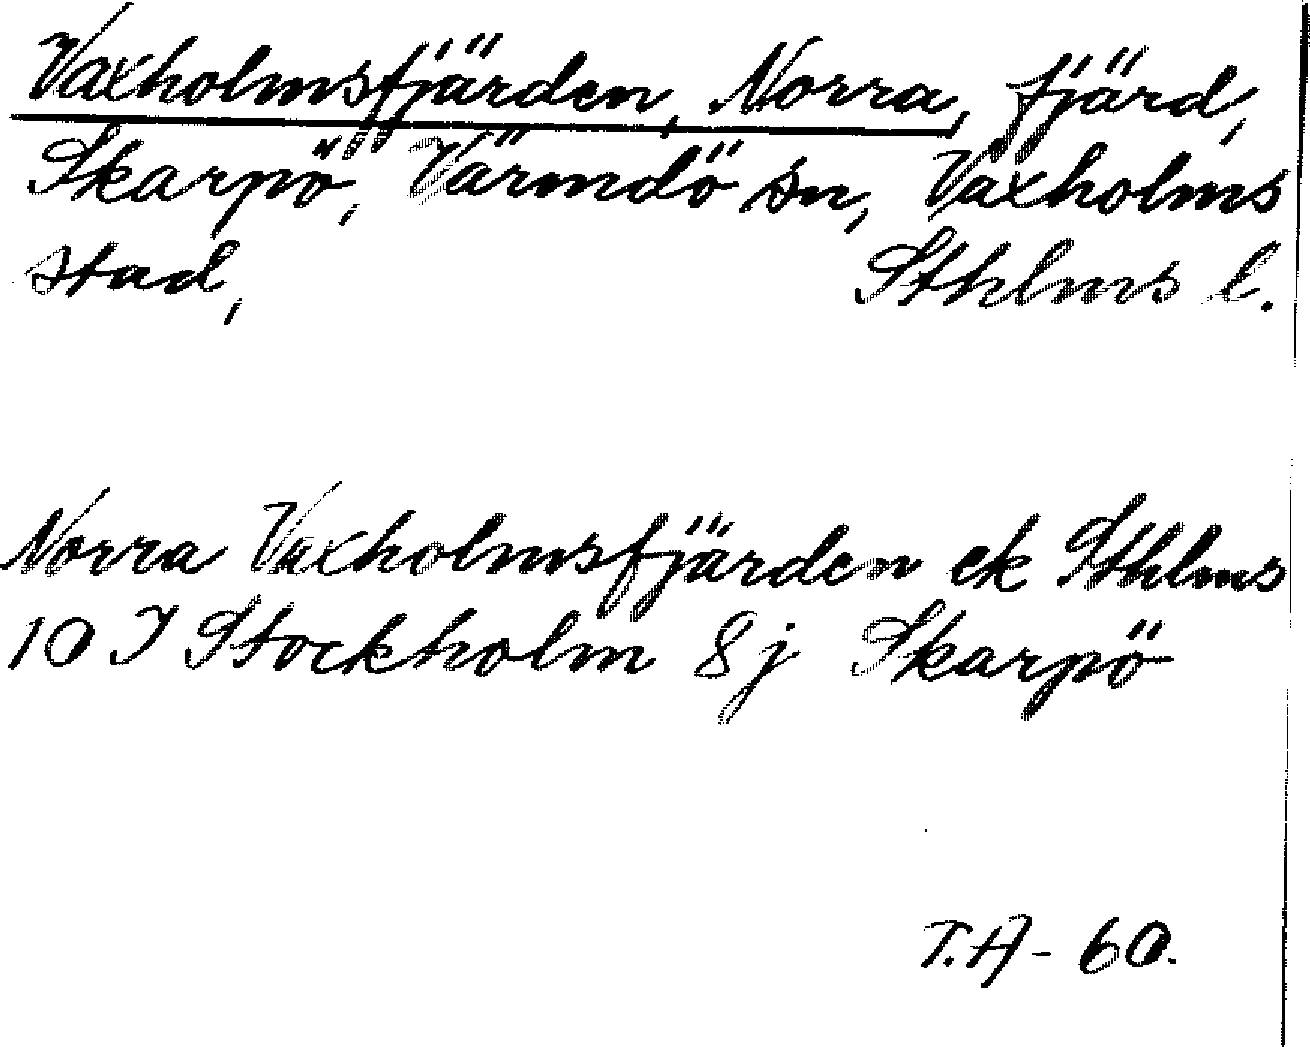 Vaxholmsfjärden, Norra, fjärd,
Skarpö, Värmdö sn, Vaxholms
stad, Sthlms l.
Norra Vaxholmsfjärden ek Sthlms
10 I Stockholm 8j Skarpö
T.A - 60.